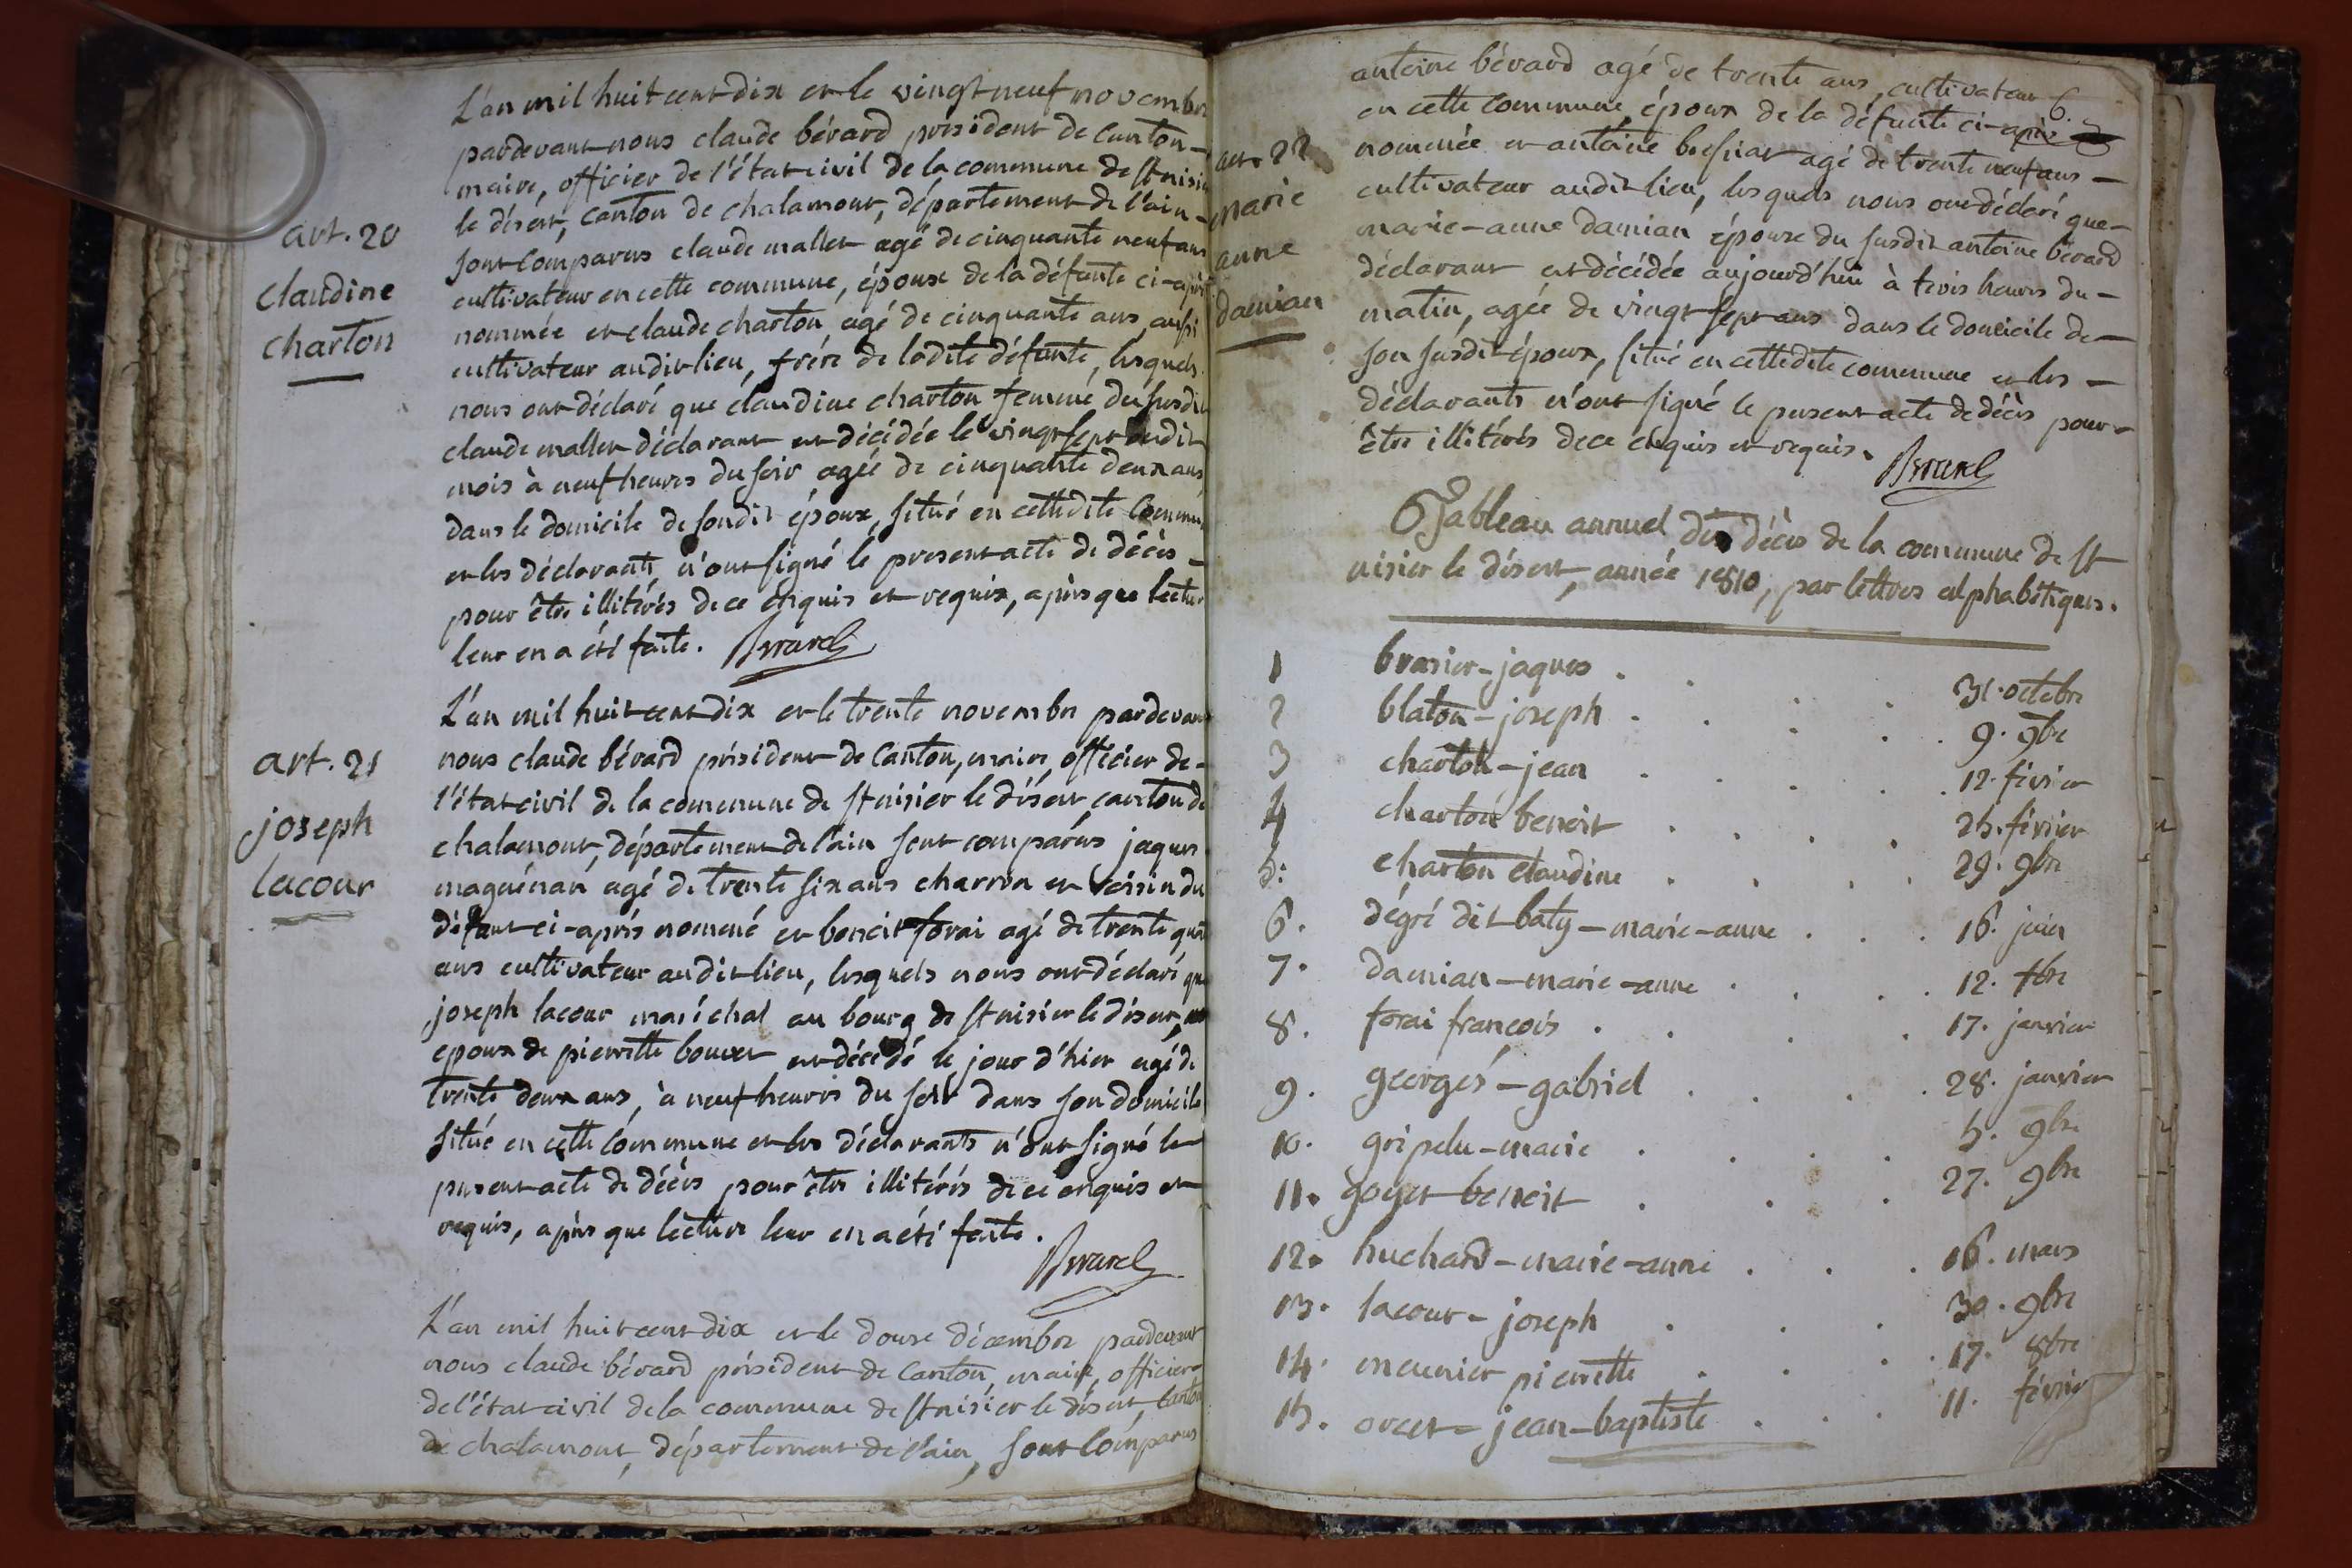 art. 20
claudine
charton
L'an mil huit cent dix et le vingt neuf novembre
pardevant nous claude bérard président de canton -
maire, officier de l'état civil de la commune de st nisier
le désert, canton de chalamont, département de l'ain -
sont comparus claude mallet agé de cinquante neuf ans
cultivateur en cette commune, époux de la défunte ci-après
nommée et claude charton agé de cinquante ans aussi
cultivateur audit lieu, frére de ladite défunte, lesquels
nous ont déclaré que claudine charton femme du susdit
claude mallet déclarant est décédée le vingt sept dudit
mois à neuf heures du soir agée de cinquante deux ans
dans le domicile de sondit époux, situé en cettedite commu
et les déclarants n'ont signé le present acte de décès -
pour être illitérés de ce enquis et requis, après que lectur
leur en a été faite. Berard
art. 21
joseph
lacour
L'an mil huit cent dix et le trente novembre pardevant
nous claude bérard président de Canton, maire, officier de -
l'état civil de la commune de st nisier le désert, canton de
chalamont, département de l'ain sont comparus jaques
maguénan agé de trente six ans charron et voisin du
défunt ci-après nommé et benoit forai agé de trente quatr
ans cultivateur audit lieu, lesquels nous ont déclaré que
joseph lacour maréchal au bourg de st nisier le désert,
epoux de pierrette bouvet est décédé le jour d'hier agé de
trente deux ans, à neuf heures du soir dans son domicile
situé en cette commune et les déclarants n'ont signé le
present acte de décès pour être illitérés de ce enquis et
requis, après que lecture leur en a été faite.
Berard
L'an mil huit cent dix et le douze décembre pardevant
nous claude bérard président de Canton, maire, officier
de l'état civil de la commune de st nisier le désert, canton
de chalamont, département de l'ain, sont comparus
6.
art. 22
marie
anne
damian
antoine bérard agé de trente ans, cultivateur
en cette commune, époux de la défunte ci-après
nommée et antoine agé de trente neuf ans -
cultivateur audit lieu, lesquels nous ont déclaré que -
marie-anne damian épouse du susdit antoine bérard
déclarant est décédée aujourd'hui à trois heures du -
matin, agée de vingt sept ans dans le domicile de -
son susdit époux, situé en cettedite commune et les -
déclarants n'ont signé le present acte de décès pour -
être illitérés de ce enquis et requis.
Berard
Tableau annuel des décès de la commune de st
nisier le désert, année 1810, par lettres alphabétiques.
1 brasier-jaques . . . . 31. octobre
2 blaton-joseph . . . . 9. 9bre
3 charton-jean . . . . 12. février
4 charton benoit . . . . 25. février
5. charton claudine . . . . 29. 9bre
6. dégré dit baty-marie-anne . . . 16. juin
7. damian-marie-anne . . . . 12. xbre
8. forai francois . . . . 17. janvier
9. georges-gabriel . . . . 28. janvier
10. gripelu-marie . . . . 5. 9bre
11. goyet benoit . . . 27. 9bre
12. huchard-marie-anne . . . 16. mars
13. lacour-joseph . . . 30. 9bre
14. meunier pierrette . . . 17. 8bre
15. orcet-jean-baptiste . . . 11. février